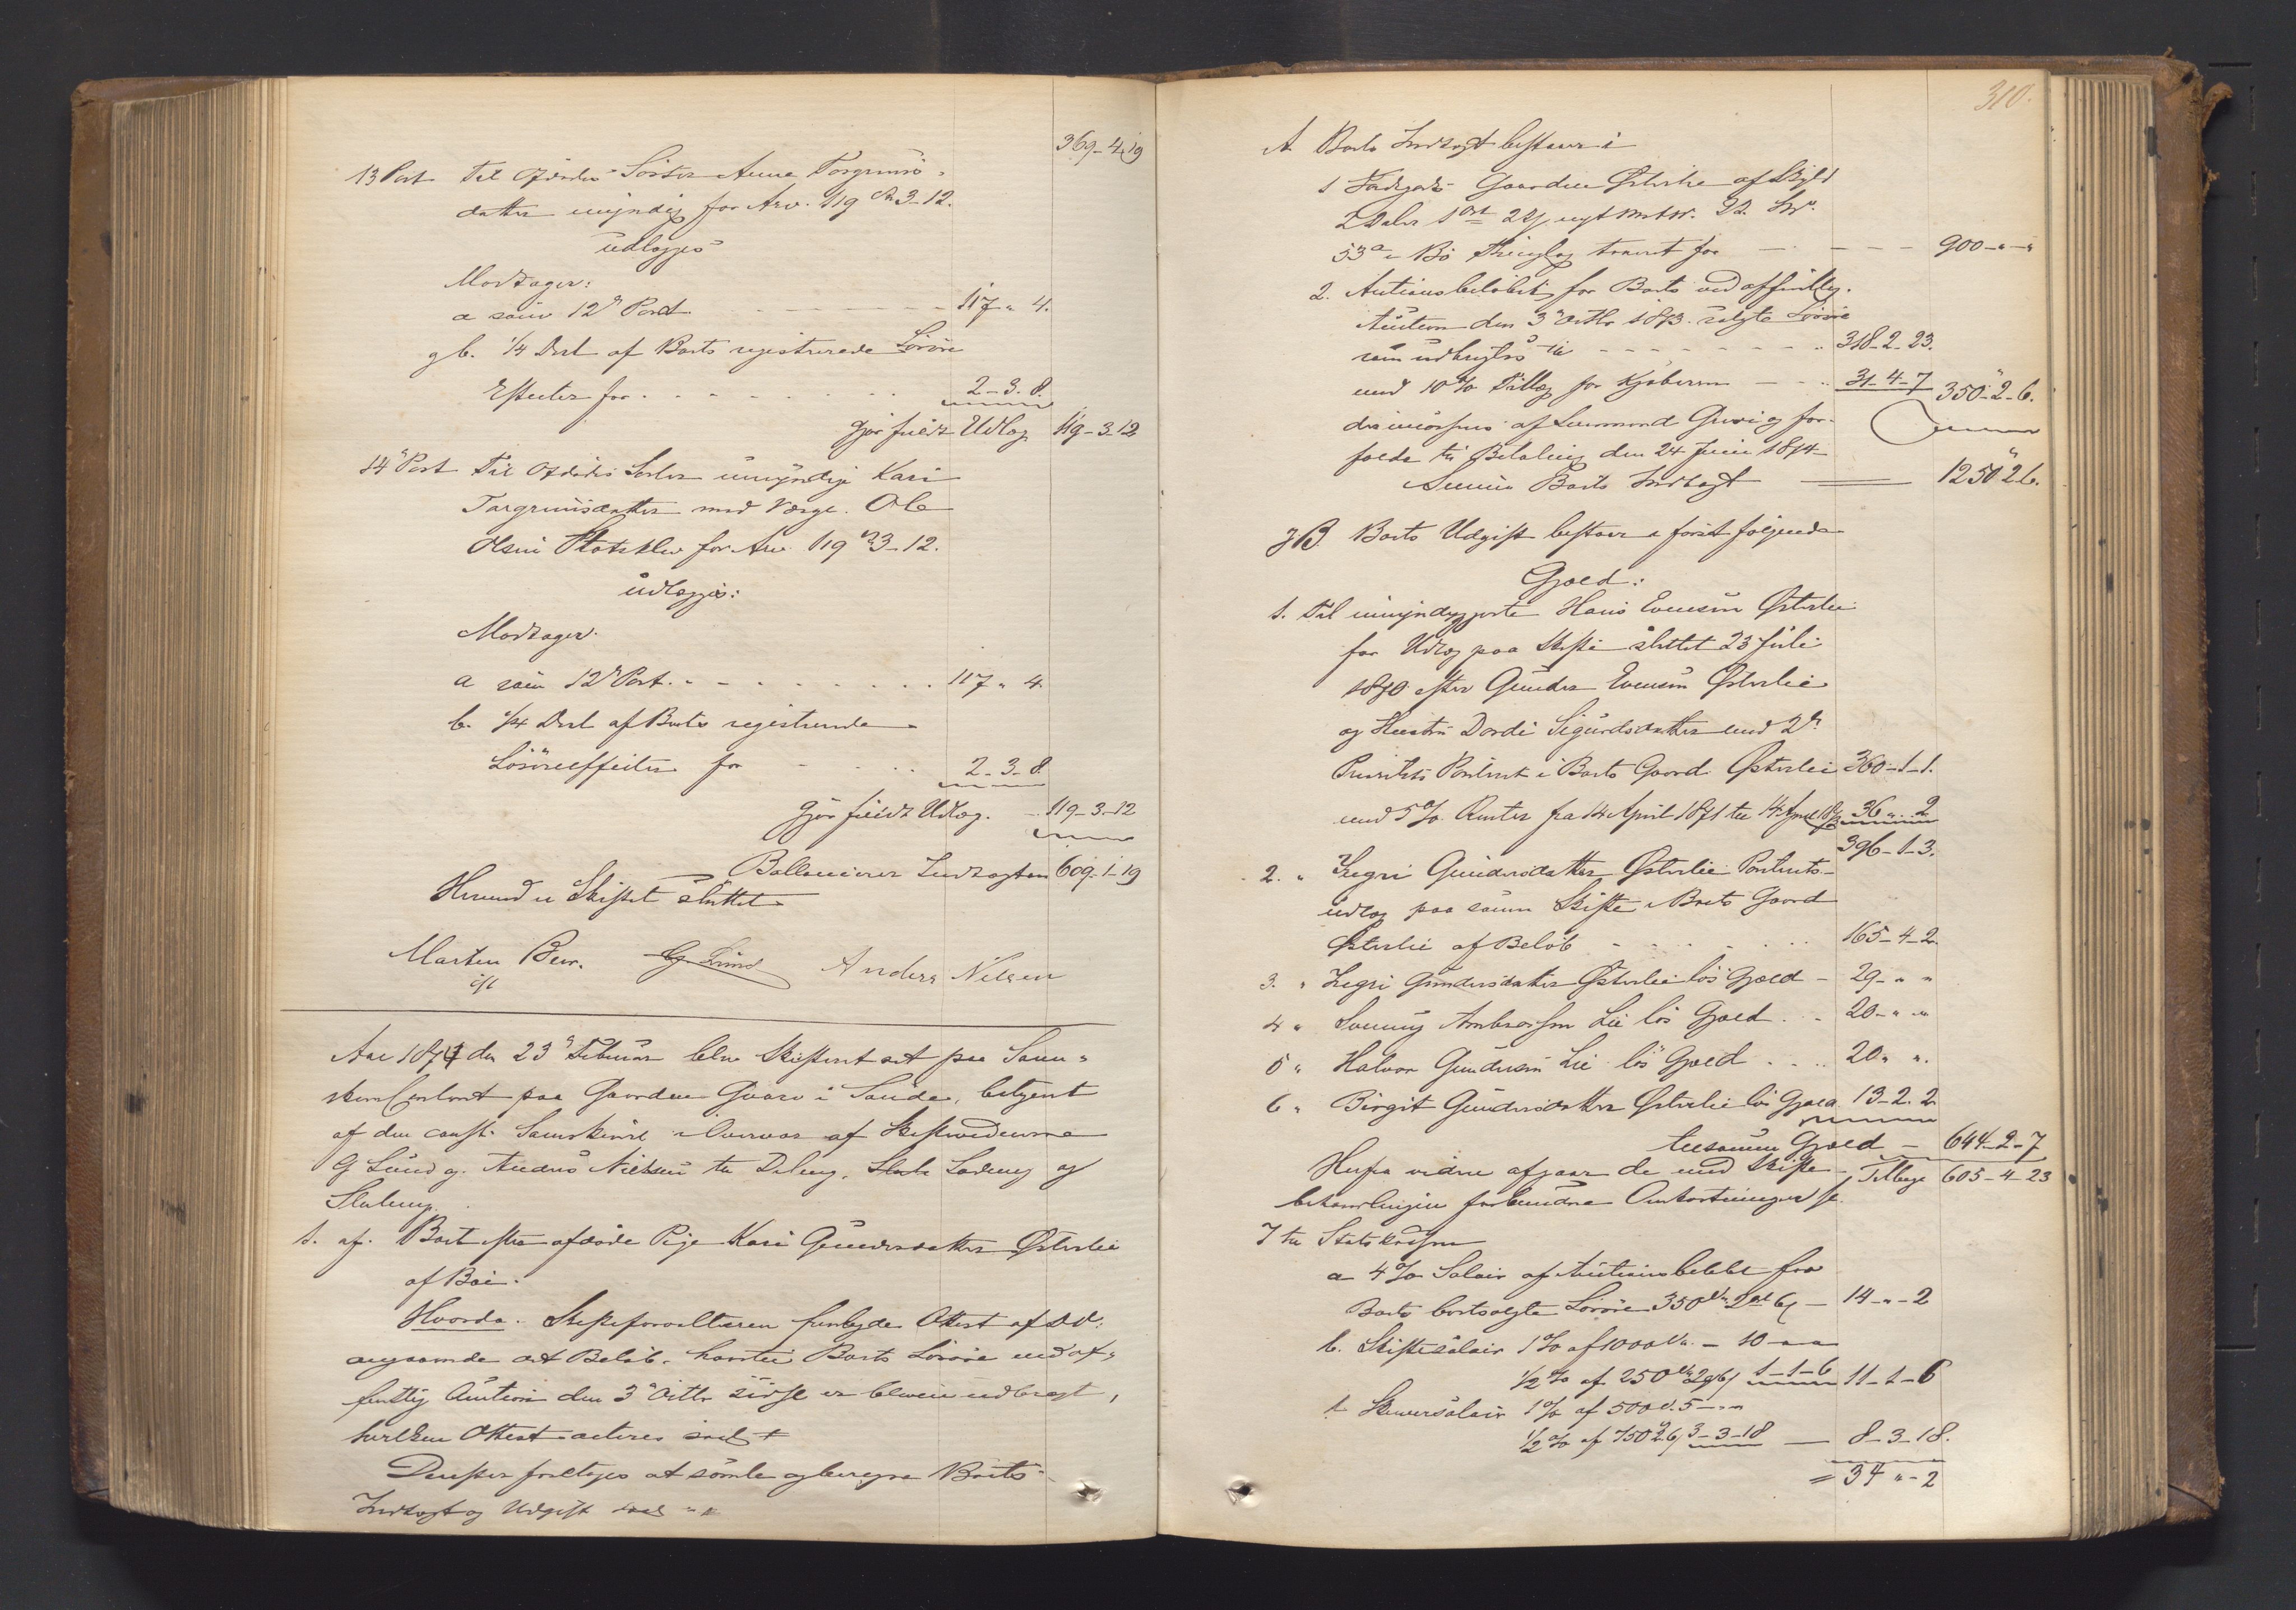 369-4-19
13 Post Til Afdødes Søster Anne Torgrims-
datter umyndig for Arv. 119 Sp 3-12.
udlægges
Modtager:
a som 12' Post - - - 117 " 4.
og b. 1/4 Deel af Boets registrerede Løsøre
Effecter for - - - 2-3-8.
Gjør fuldt Udlæg 119-3-12
14' Post Til Afdødes Søster umyndige Kari
Torgrimsdatter med Værge. Ole
Olsen for Arv 119 Sp 3-12.
udlægges:
Modtager.
a som 12' Post. - - - 117 " 4.
b. 1/4 Deel af Boets registrerede
Løsøreeffecter for - - - 2-3-8.
Gjør fuldt Udlæg. - 119-3-12
Ballancerer Indtægten 609-1-19
Hermed er Skiftet sluttet
Marten Beur. G. Lund Anders Nilsen
cst
Aar 1874 den 23' Februar blev Skifteret sat paa Soren-
skriver Contoret paa Gaarden Gvarv i Saude, betjent
af den const. Sorenskriver i Overvær af Skiftevidnerne
G Lund og Anders Nielsen til Deling, Lodning og
Slutning.
1. af. Boet efter afdøde Pige Kari Gundersdatter Østerlie
af Bøe.
Hvorda. Skifteforvalteren fremlagde Attest af D. D.
angaaende det Beløb, hvortil Boets Løsøre ved of-
fentlig Auction den 3' Octbr sidste er bleven udbragt,
hvilken Attest acteres saal
Derefter foretoges at samle og beregne Boets
Indtægt og Udgift saal
310.
A Boets Indtægt bestaar i
1 Jordgods Gaarden Østerlie af Skyld
2 Daler 1 Ort 22 s, nyt Matr. 22. Lbr.
53a i Bø Thinglag taxeret for - - - 900 - " - "
2. Auctionsbeløbet for Boets ved offentlig
Auction den 3' Octbr 1873 solgte Løsøre
som udbragtes til - - - 318-2-23.
med 10% Tillæg for Kjøberen - - 31-4-7 350-2-6.
der incasseres af Lensmand Grivi og for-
falde til Betaling den 24 Juni 1874
Summa Boets Indtægt 1250 " 2 " 6.
og B. Boets Udgift bestaar i først følgende
Gjæld:
1. Til umyndiggjorte Hans Evensen Østerlie
for Udlæg paa Skifte sluttet 23 Juli
1870 efter Gunder Evensen Østerlie
og Hustru Dordi Sigurdsdatter med 2'
Prioritets Panteret i Boets Gaard Østerlie 360-1-1.
med 5% Renter fra 14 April 1871 til 14 April 1873 36 " 2
396-1-3.
2. " Ingri Gundersdatter Østerlie Pantrets-
udlæg paa samme Skifte i Boets Gaard
Østerlie af Beløb - - - 165-4-2.
3. " Ingri Gundersdatter Østerlie løs Gjæld - 29 - " "
4 " Sonnung Ambrosen Lie løs Gjæld . . - 20 - " - "
5 " Halvor Gundersen Lie løs Gjæld . . . . 20 " " .
6 " Birgit Gundersdatter Østerlie løs Gjæld 13-2-2
tilsammen Gjæld - 644-2-7
Herfra videre afgaar de med Skifte- Tilbage 605-4-23
behandlingen forbundne Omkostninger s.
7 til Statskassen
a 4% Salair af Auctionsbeløbet for
Boets bortsolgte Løsøre 350 Sp 2 Ort 6 s - 14 - " - 2
b. Skiftesalair 1% af 1000 Sp. - 10 - " "
1/2% af 250 Sp 2 Ort 6 s 1-1-6 11-1-6
c Skriversalair 1% af 500 D. 5 - " "
1/2% af 750 2 6 s 3-3-18 - 8-3-18.
= 34 " - 2